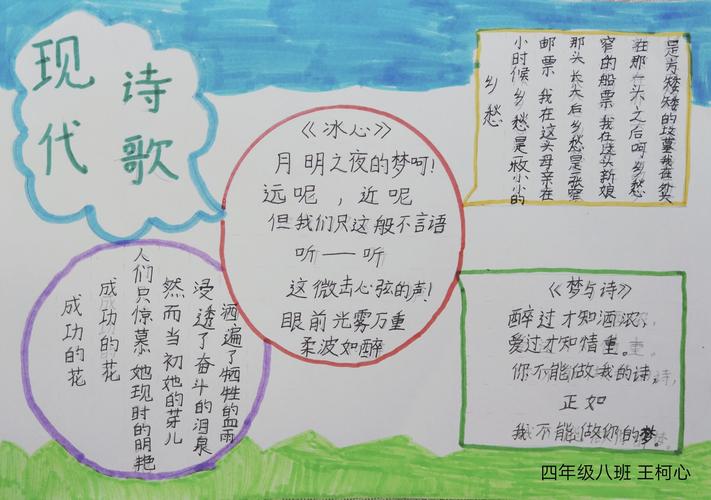 现代
诗歌
《冰心》
月明之夜的梦呵!
远呢,近呢
但我们只这般不言语
听——听
这微击心弦的声!
眼前光雾万重
柔波如醉
乡愁
小时候 乡愁是一枚小小的
邮票 我在这头母亲在
那头 长大后 乡愁是一张窄
窄的船票 我在这头新娘
在那头 之后呵 乡愁
是方矮矮的坟墓我在外头
成功的花
成功的花
人们只惊慕她现时的明艳
然而当初她的芽儿
浸透了奋斗的泪泉
洒遍了牺牲的血雨
《梦与诗》
醉过才知酒浓,
爱过才知情重。
你不能做我的诗,
正如
我不能做你的梦。
四年级八班 王柯心